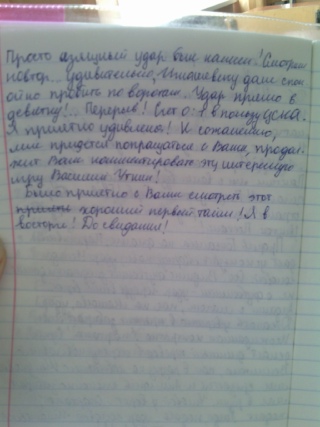 Просто изящный удар был нанесен! Смотрим
повтор... Удивительно, Игнашевичу дали спок
ойно пробить по воротам... Удар прямо в
девятку!... Перерыв! Счет 0:1 в пользу ЦСКА.
Я приятно удивлена! К сожалению,
мне придется попрощаться с Вами, продол
жит Вами комментировать эту интересную
игру Василий Уткин!
Было приятно с Вами смотреть этот
хороший первый тайм! Я в
восторге! До свидания!